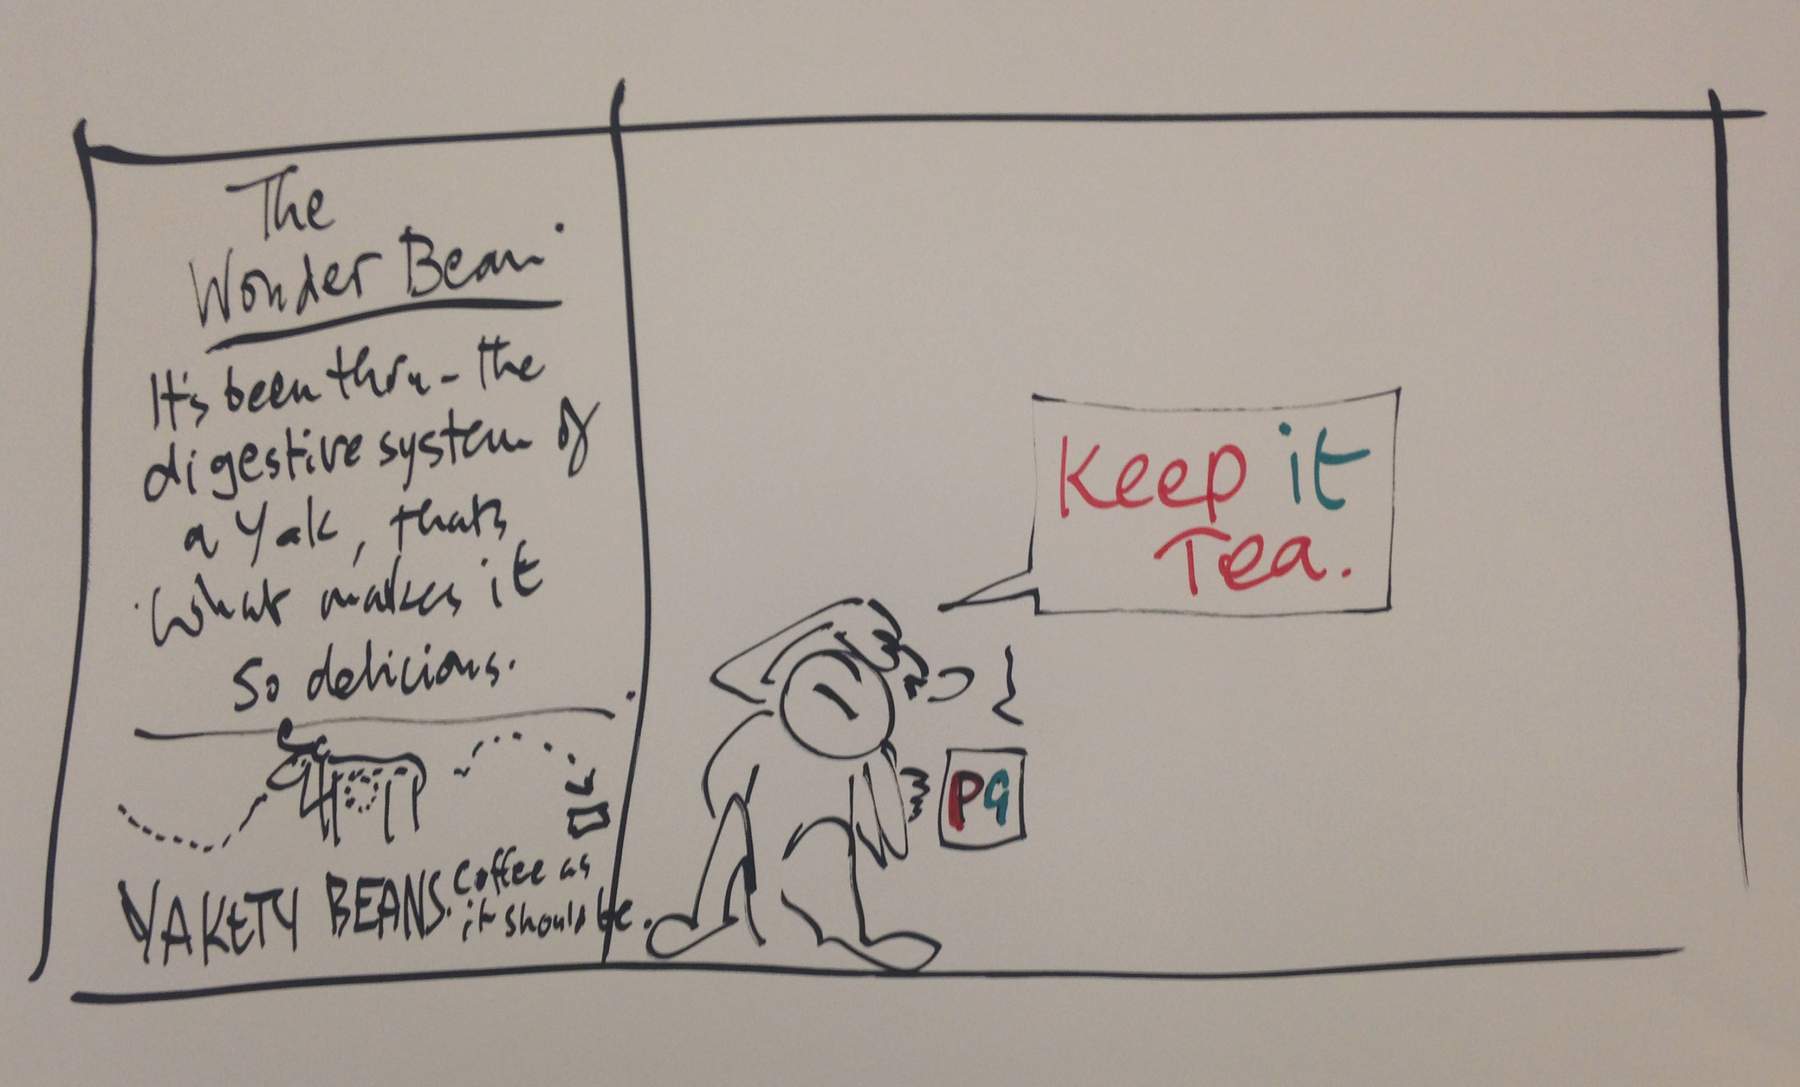 The
Wonder Bean.
It's been thru - the
digestive system of
a Yak, thats
what makes it
so delicious.
YAKETY BEANS. Coffee as
it should be.
Keep it
Tea.
PG